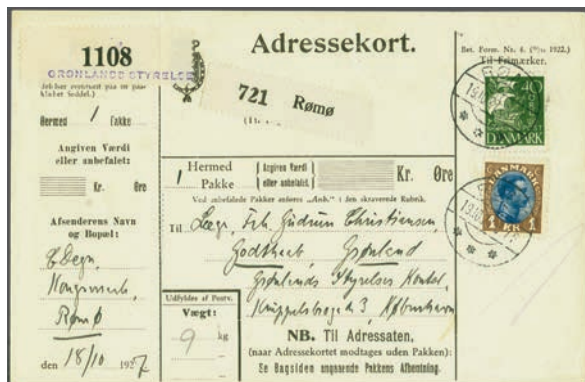 1108
GRØNLANDS STYRELSE
Hermed 1 Pakke
Angiven Værdi
eller anbefalet:
Kr. Øre
Afsenderens Navn
og Bopæl:
Rømø
den 18/10 1927
Adressekort.
721 Rømø
Bet. Form. Nr. 6. 1922.)
Til Frimærker.
1 Hermed
Pakke
Angiven Værdi
eller anbefalet.
Kr. Øre
Ved anbefalede Pakker anføres „Anb.“ i den skraverede Rubrik.
Til Læge, Frk. Gudrun Christiansen,
Godthaab, Grønland
Grønlands Styrelses Kontor,
Knippelsbrogade 3, København
Udfyldes af Postv.
Vægt:
9 kg
NB. Til Adressaten,
(naar Adressekortet modtages uden Pakken):
Se Bagsiden angaaende Pakkens Afhentning.
40
DANMARK
DANMARK
1 KR 1